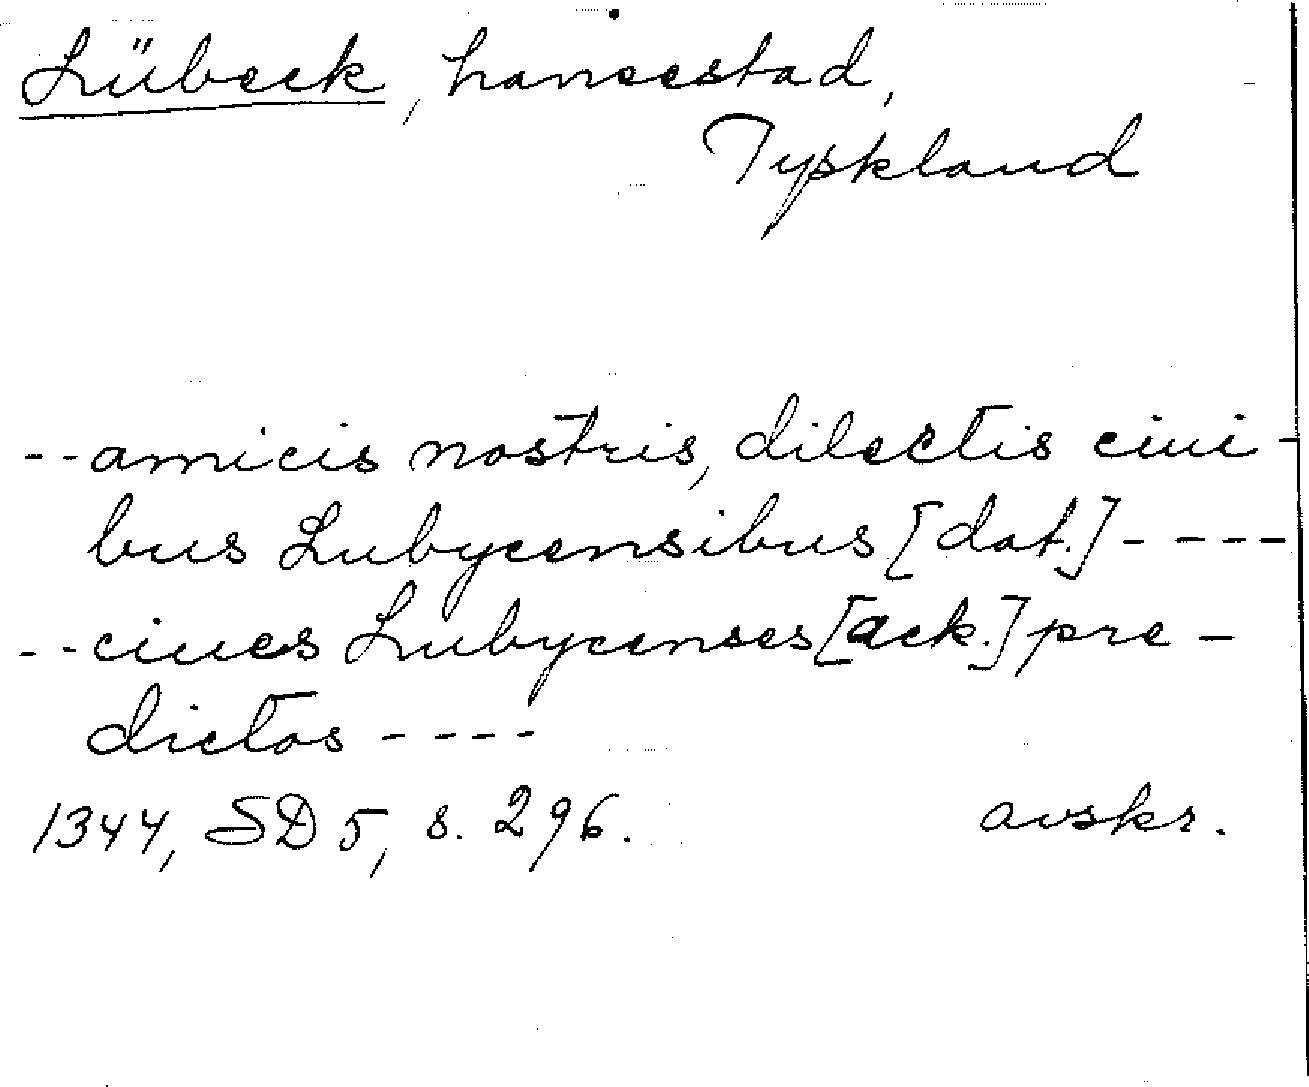 Lübeck, hansestad,
Tyskland
--amicis nostris, dilectis ciui-
bus Lubycensibus [dat.]----
--ciues Lubycenses [ack.] pre-
dictos----
1344, SD 5, s. 296. avskr.